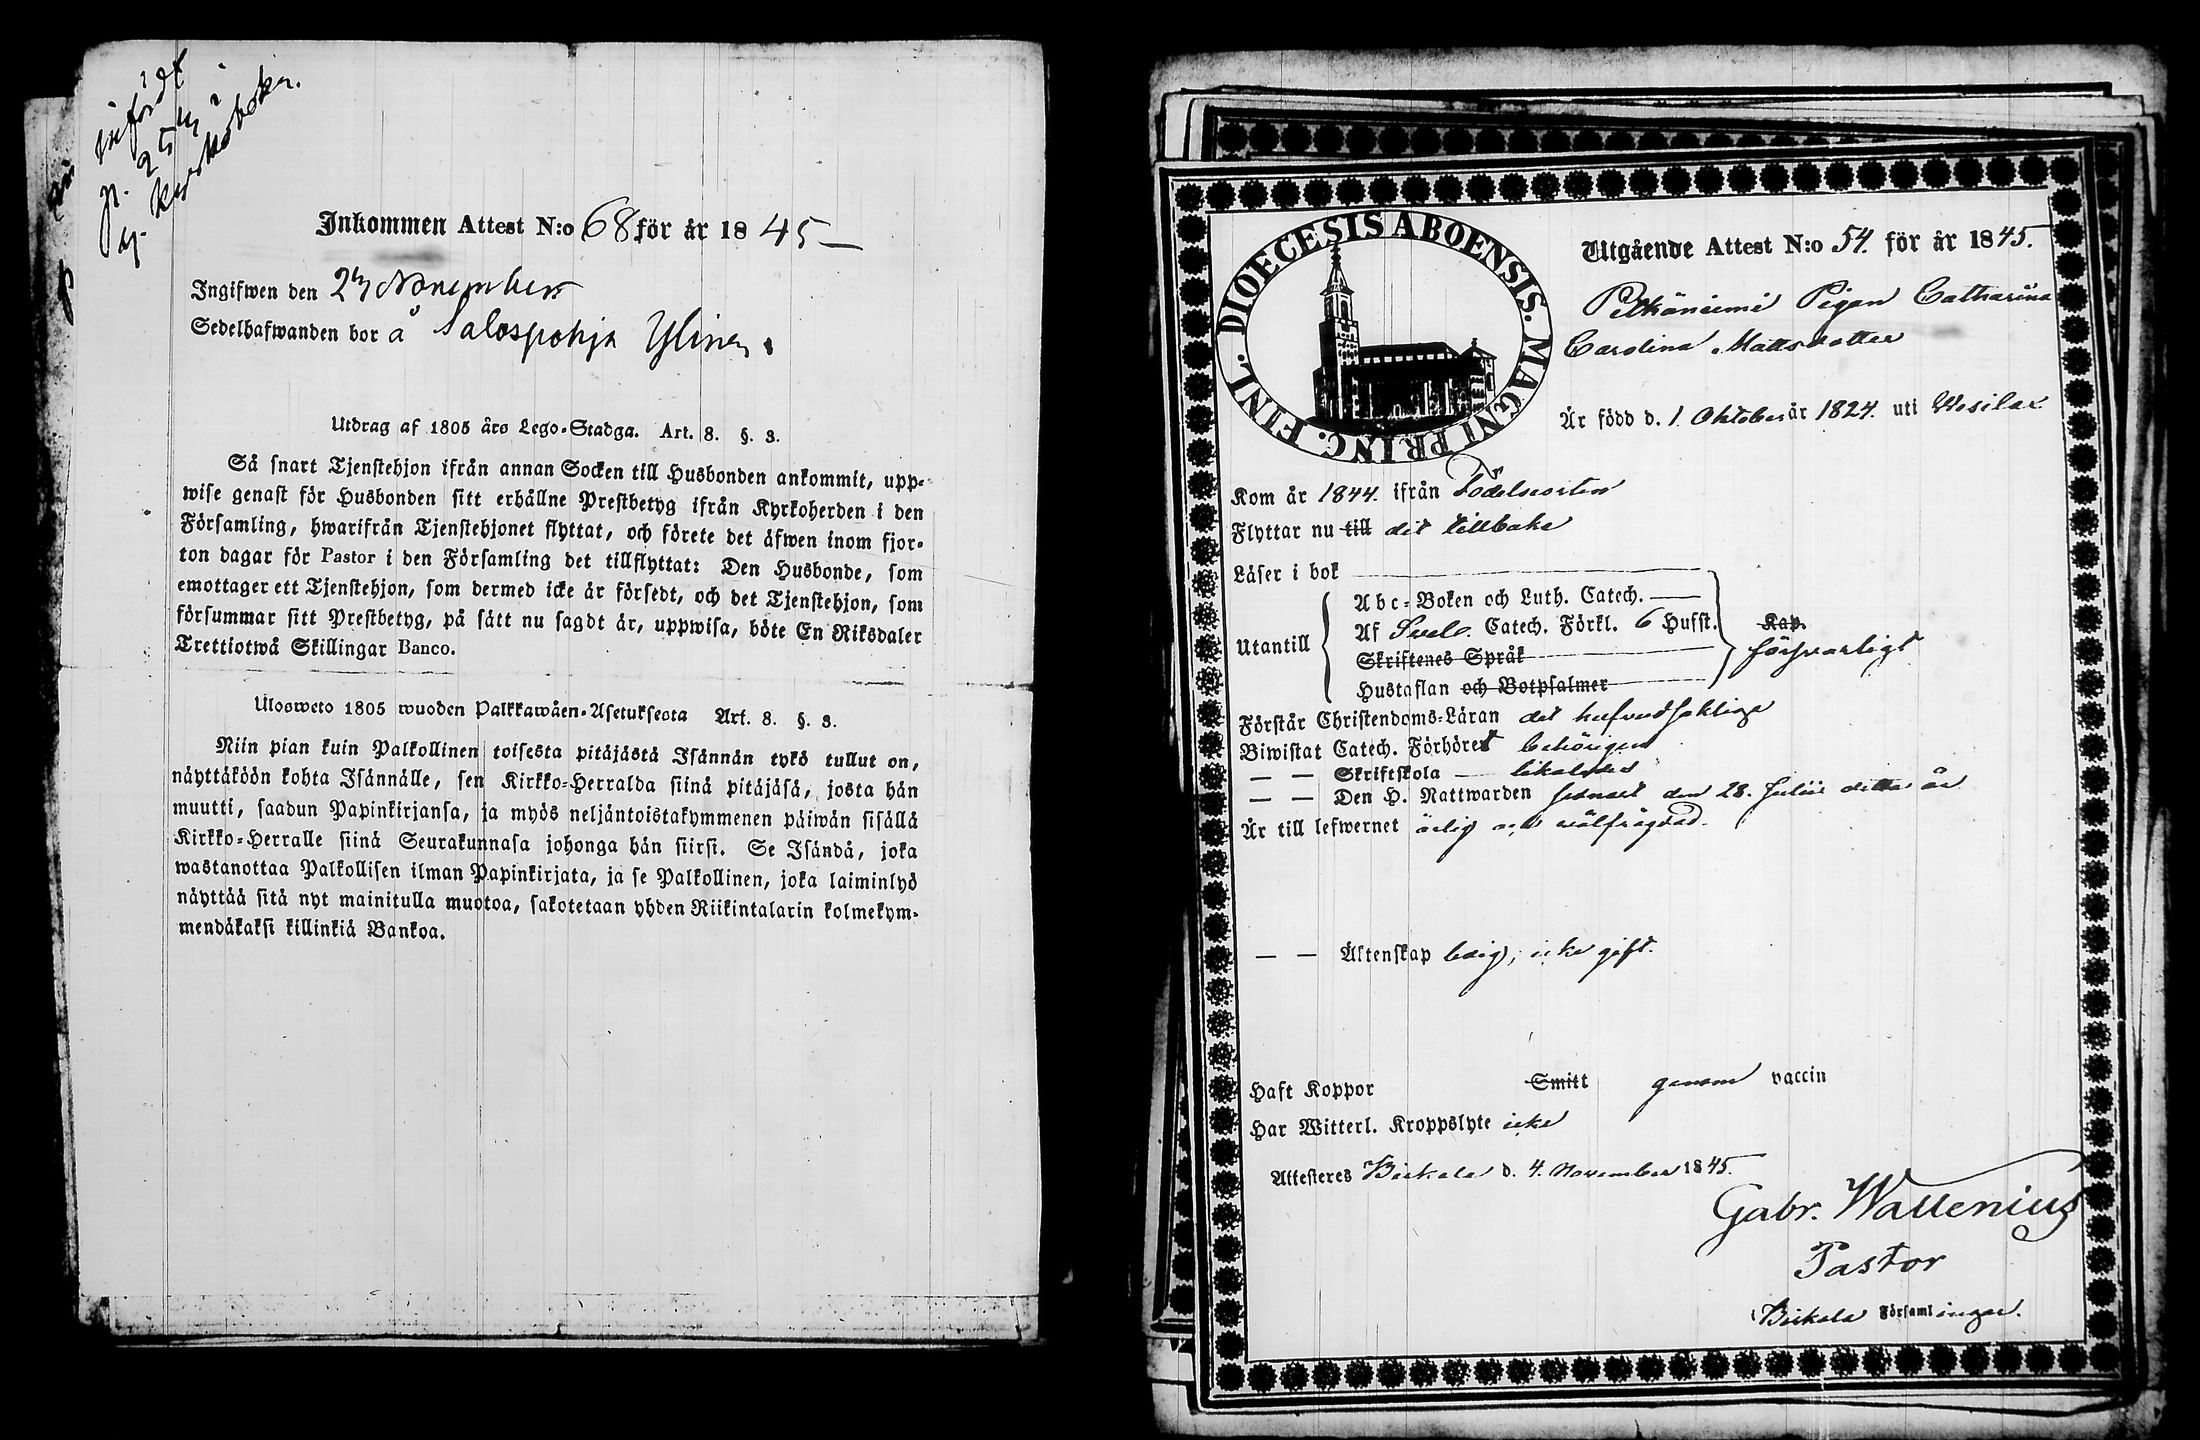 infördt
p. 25 
kyrkoboken.
Inkommen Attest N:o 68 för år 1845
Ingifwen den 27 November
Sedelhafwanden bor å Salospohja Ylinen
Utdrag af 1805 års Lego-Stadga. Art. 8. §. 3.
Så snart Tjenstehjon ifrån annan Socken till Husbonden ankommit, upp-
wise genast för Husbonden sitt erhållne Prestbetyg ifrån Kyrkoherden i den
Församling, hwarifrån Tjenstehjonet flyttat, och förete det äfwen inom fjor-
ton dagar för Pastor i den Församling det tillflyttat: Den Husbonde, som
emottager ett Tjenstehjon, som dermed icke är försedt, och det Tjenstehjon, som
försummar sitt Prestbetyg, på sätt nu sagdt är, uppwisa, böte En Riksdaler
Trettiotwå Skillingar Banco.
Ulosweto 1805 wuoden Palkkawäen-Asetuksesta Art. 8. §. 3.
Niin pian kuin Palkollinen toisesta pitäjästä Isännän tykö tullut on,
näyttäköön kohta Isännälle, sen Kirkko-Herralda siinä pitäjäsä, josta hän
muutti, saadun Papinkirjansa, ja myös neljäntoistakymmenen päiwän sisällä
Kirkko-Herralle siinä Seurakunnasa johonga hän siirsi. Se Isändä, joka
wastanottaa Palkollisen ilman Papinkirjata, ja se Palkollinen, joka laiminlyö
näyttää sitä nyt mainitulla muotoa, sakotetaan yhden Riikintalarin kolmekym-
mendäkaksi killinkiä Bankoa.
DIOECESIS ABOENSIS. MAGNI PRINC. FINL.
Utgående Attest N:o 54. för år 1845.
Pitkäniemi Pigan Catharina
Carolina Mattsdotter
Är född d. 1 Oktober år 1824. uti Wesilax
Kom år 1844. ifrån Födelseorten
Flyttar nu till dit tillbaka
Läser i bok
Utantill
Abc-Boken och Luth. Catech.
Af Svel. Catech. Förkl. 6 Hufst.
Skriftenes Språk
Hustaflan och Botpsalmer
Kap.
försvarligt
Förstår Christendoms-Läran det hufvudsakliga
Biwistat Catech. Förhöret behörigen
— — Skriftskola likaledes
— — Den H. Nattwarden senast den 28. Julii detta år
Är till lefwernet ärlig och wälfrägdad.
— — Äktenskap ledig, icke gift.
Haft Koppor Smitt genom vaccin
Har Witterl. Kroppslyte icke
Attesteres Birkala d. 4. November 1845.
Gabr. Wallenius
Pastor
i Birkala Församlingar.